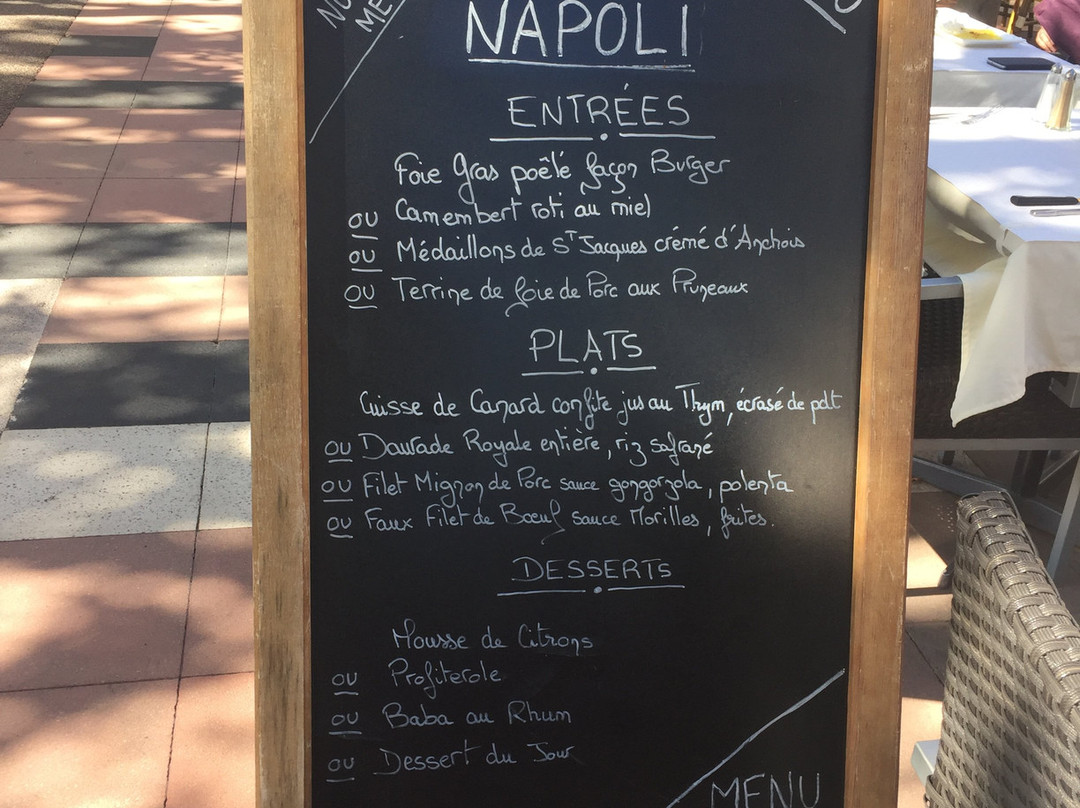 NAPOLI
ENTRÉES
Foie Gras poêlé façon Burger
OU Camembert roti au miel
OU Médaillons de ST Jacques crémé d'Anchois
OU Terrine de foie de Porc aux Pruneaux
PLATS
Cuisse de Canard confite jus au Thym, écrasé de pdt
OU Daurade Royale entière, riz safrané
OU Filet Mignon de Porc sauce gongorzola, polenta
OU Faux Filet de Bœuf sauce Morilles, frites.
DESSERTS
Mousse de Citrons
OU Profiterole
OU Baba au Rhum
OU Dessert du Jour
MENU